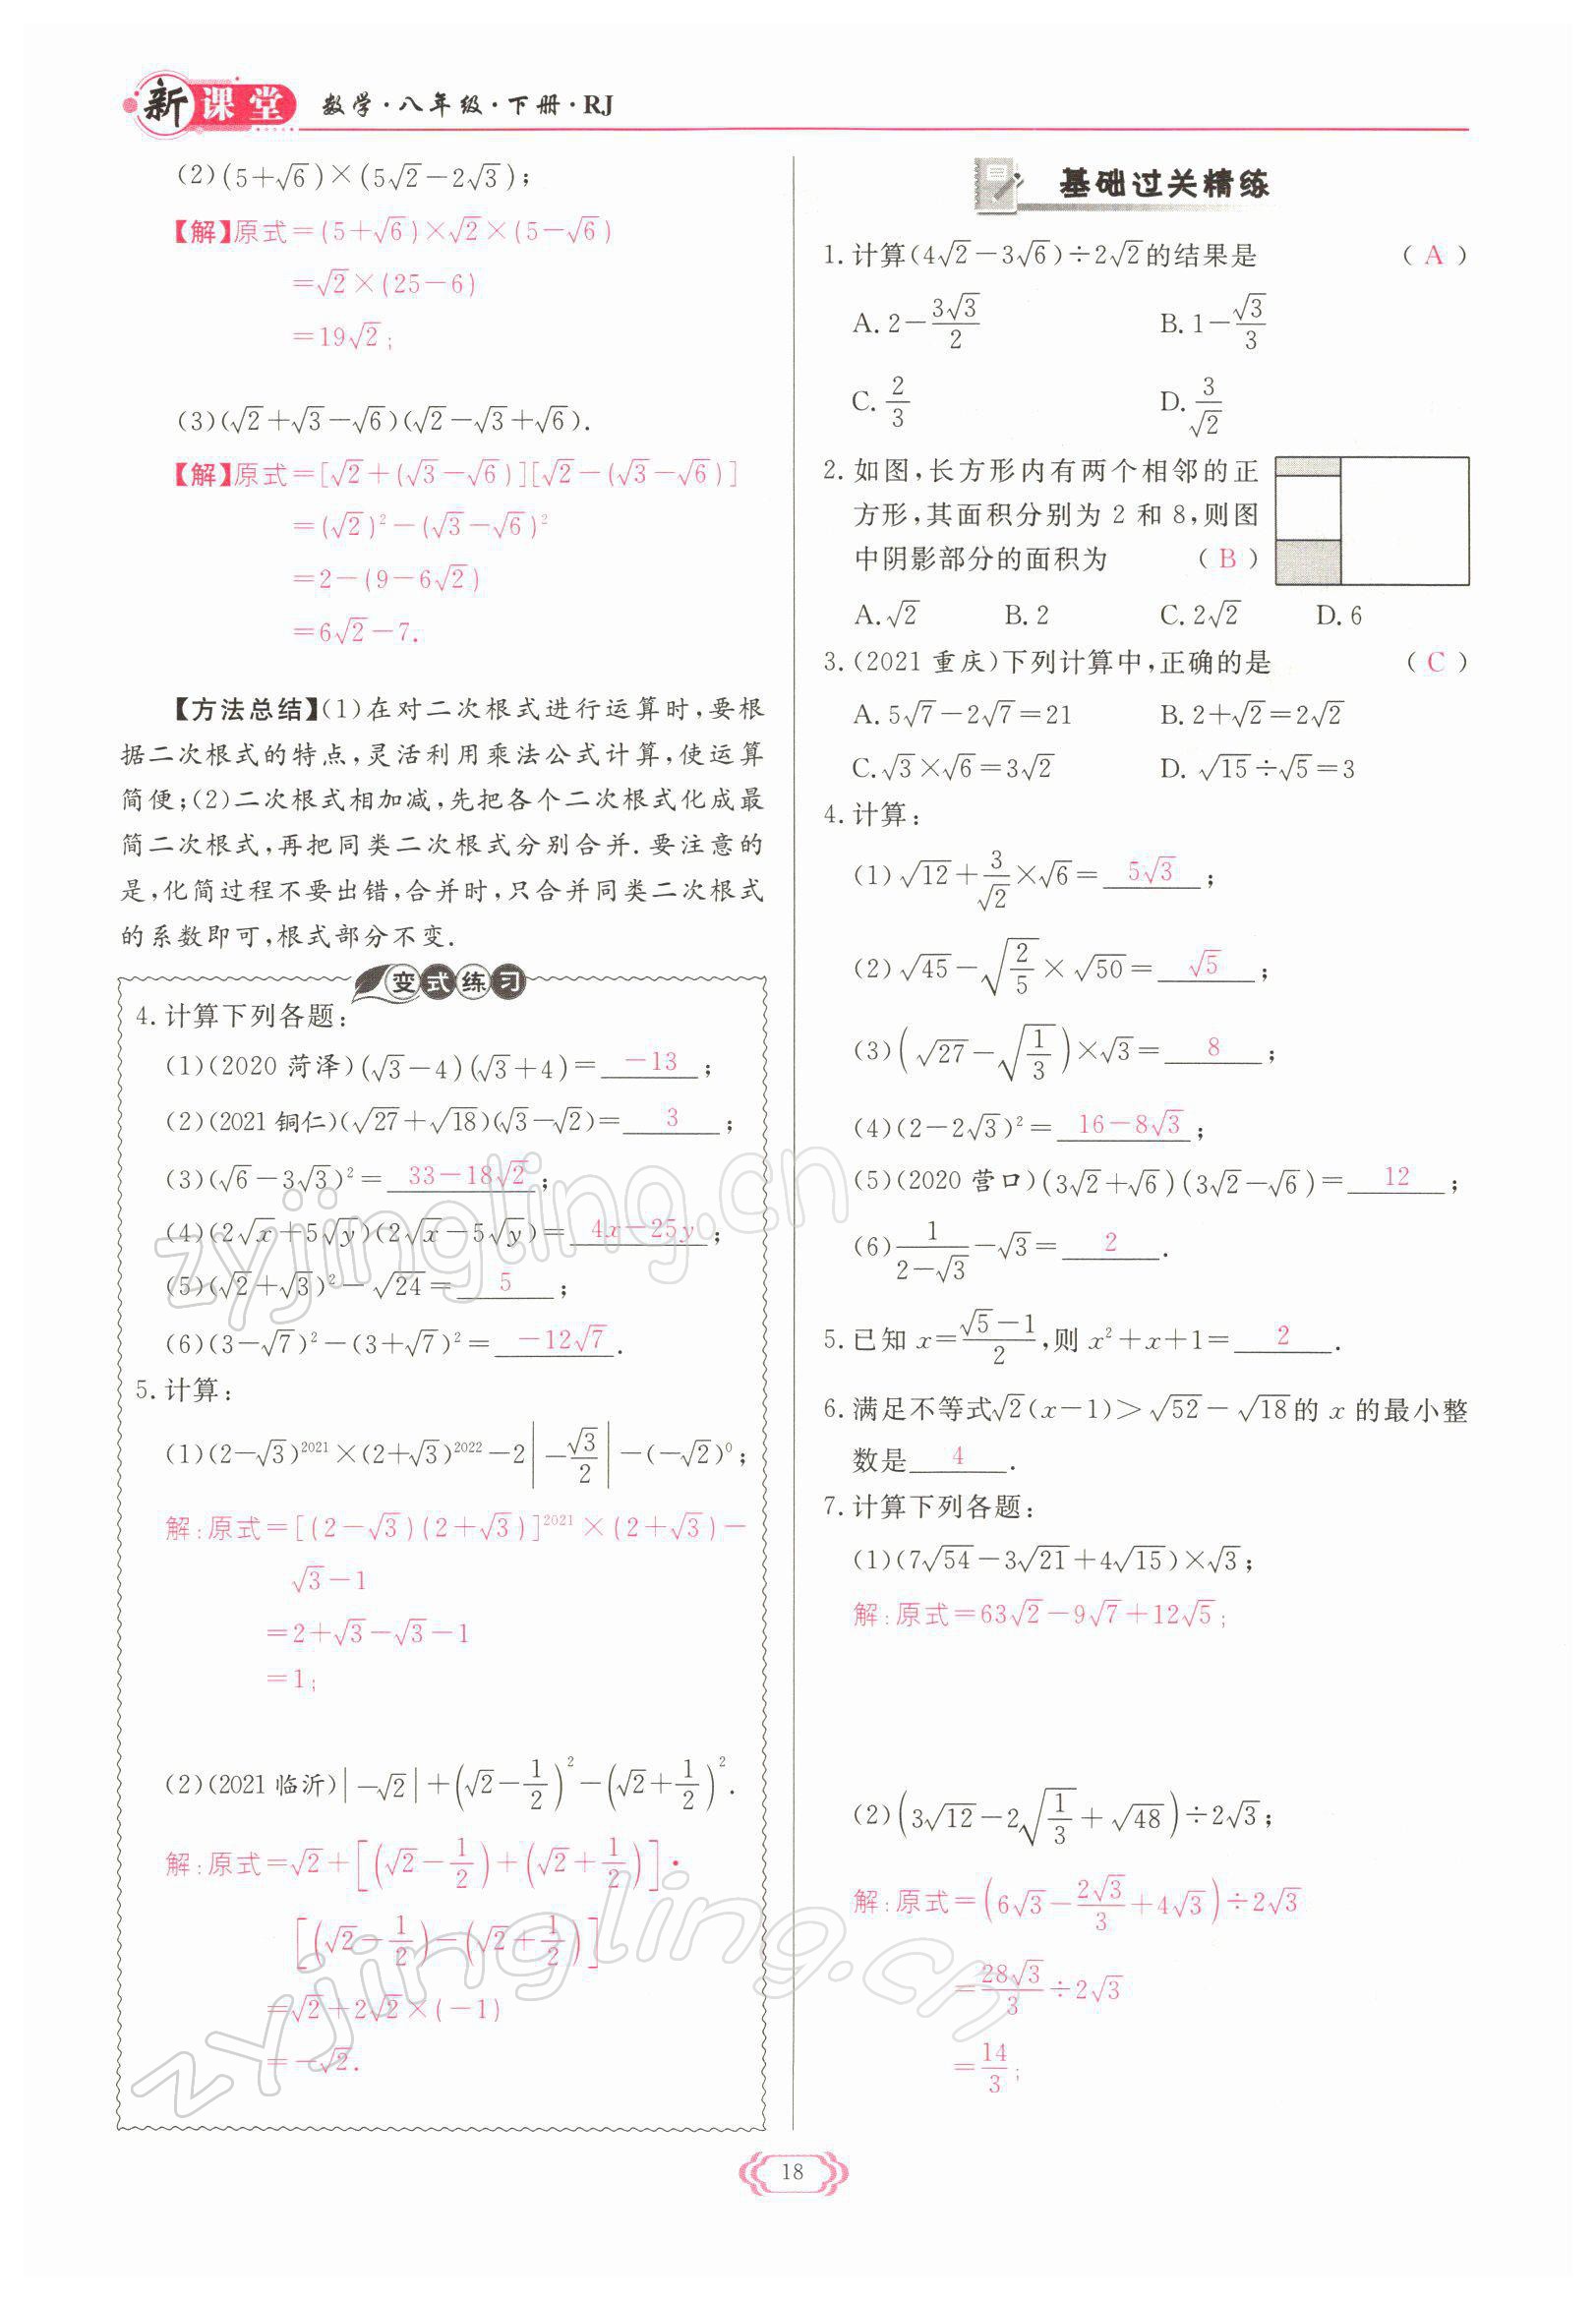 新课堂 数学·八年级·下册·RJ
(2)(5+√6)×(5√2-2√3);
【解】原式=(5+√6)×√2×(5-√6)
=√2×(25-6)
=19√2;
(3)(√2+√3-√6)(√2-√3+√6).
【解】原式=[√2+(√3-√6)][√2-(√3-√6)]
=(√2)²-(√3-√6)²
=2-(9-6√2)
=6√2-7.
【方法总结】(1)在对二次根式进行运算时,要根
据二次根式的特点,灵活利用乘法公式计算,使运算
简便;(2)二次根式相加减,先把各个二次根式化成最
简二次根式,再把同类二次根式分别合并.要注意的
是,化简过程不要出错,合并时,只合并同类二次根式
的系数即可,根式部分不变.
变式练习
4.计算下列各题:
(1)(2020 菏泽)(√3-4)(√3+4)=-13;
(2)(2021 铜仁)(√27+√18)(√3-√2)=3;
(3)(√6-3√3)²=33-18√2;
(4)(2√x+5√y)(2√x-5√y)=4x-25y;
(5)(√2+√3)²-√24=5;
(6)(3-√7)²-(3+√7)²=-12√7.
5.计算:
(1)(2-√3)²⁰²¹×(2+√3)²⁰²²-2|-√3/2|-(-√2)⁰;
解:原式=[(2-√3)(2+√3)]²⁰²¹×(2+√3)-
√3-1
=2+√3-√3-1
=1;
(2)(2021 临沂)|-√2|+(√2-1/2)²-(√2+1/2)².
解:原式=√2+[(√2-1/2)+(√2+1/2)]·
[(√2-1/2)-(√2+1/2)]
=√2+2√2×(-1)
=-√2.
基础过关精练
1.计算(4√2-3√6)÷2√2的结果是 (A)
A.2-3√3/2 B.1-√3/3
C.2/3 D.3/√2
2.如图,长方形内有两个相邻的正
方形,其面积分别为 2 和 8,则图
中阴影部分的面积为 (B)
A.√2 B.2 C.2√2 D.6
3.(2021 重庆)下列计算中,正确的是 (C)
A.5√7-2√7=21 B.2+√2=2√2
C.√3×√6=3√2 D.√15÷√5=3
4.计算:
(1)√12+3/√2×√6=5√3;
(2)√45-√(2/5)×√50=√5;
(3)(√27-√(1/3))×√3=8;
(4)(2-2√3)²=16-8√3;
(5)(2020 营口)(3√2+√6)(3√2-√6)=12;
(6)1/(2-√3)-√3=2.
5.已知 x=(√5-1)/2,则 x²+x+1=2.
6.满足不等式√2(x-1)>√52-√18的 x 的最小整
数是4.
7.计算下列各题:
(1)(7√54-3√21+4√15)×√3;
解:原式=63√2-9√7+12√5;
(2)(3√12-2√(1/3)+√48)÷2√3;
解:原式=(6√3-2√3/3+4√3)÷2√3
=28√3/3÷2√3
=14/3;
18
zyjingling.cn
zyjingling.cn